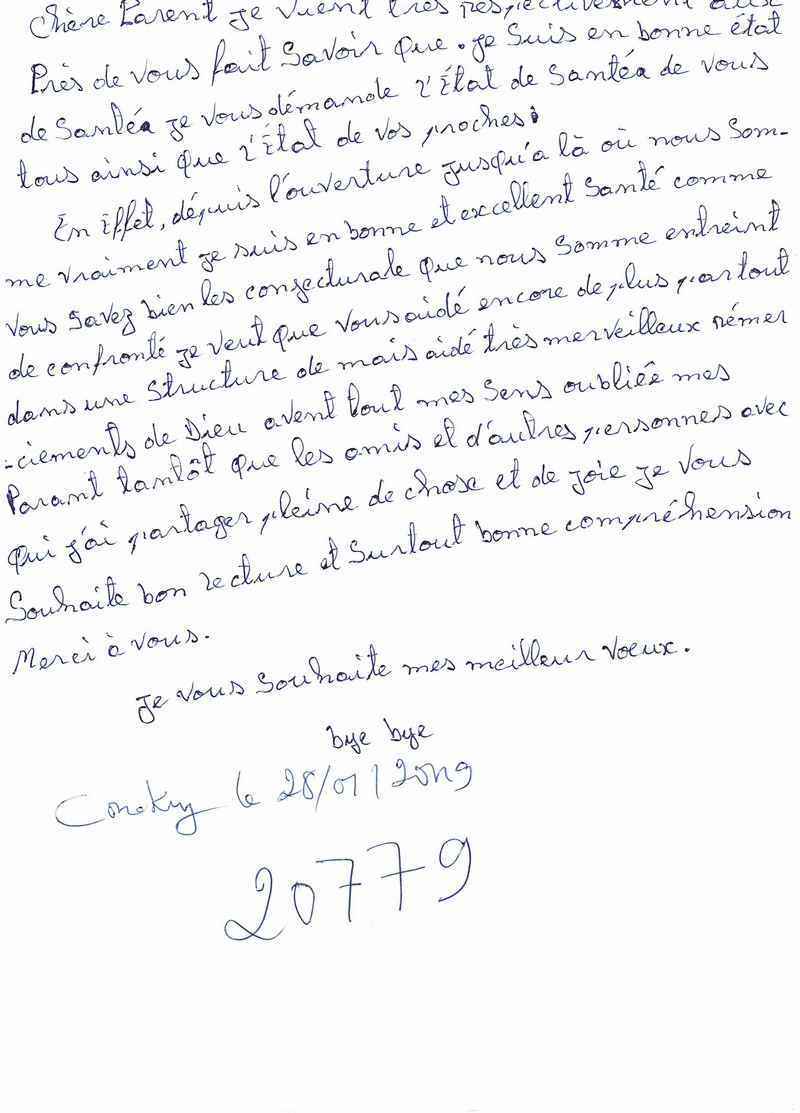 Chère Parent je vient très respectivement
Près de vous fait savoir que. je suis en bonne état
de Santéa je vous démande l'État de Santéa de vous
tous ainsi que l'État de vos proches.
En Effet, dépuis l'ouverture jusqu'a là où nous som-
me vraiment je suis en bonne et excellent Santé comme
vous savez bien les conjecturale que nous somme entreint
de confronté je veut que vous aidé encore de plus partout
dans une structure de mais aidé très merveilleux rémer
-ciements de Dieu avent tout mes sens oubliée mes
Parant tantôt que les amis et d'autres personnes avec
qui j'ai partager pleine de chose et de joie je vous
Souhaite bon lecture et surtout bonne compréhension
Merci à vous.
je vous souhaite mes meilleur voeux.
bye bye
Conakry le 28/01/2019
20779